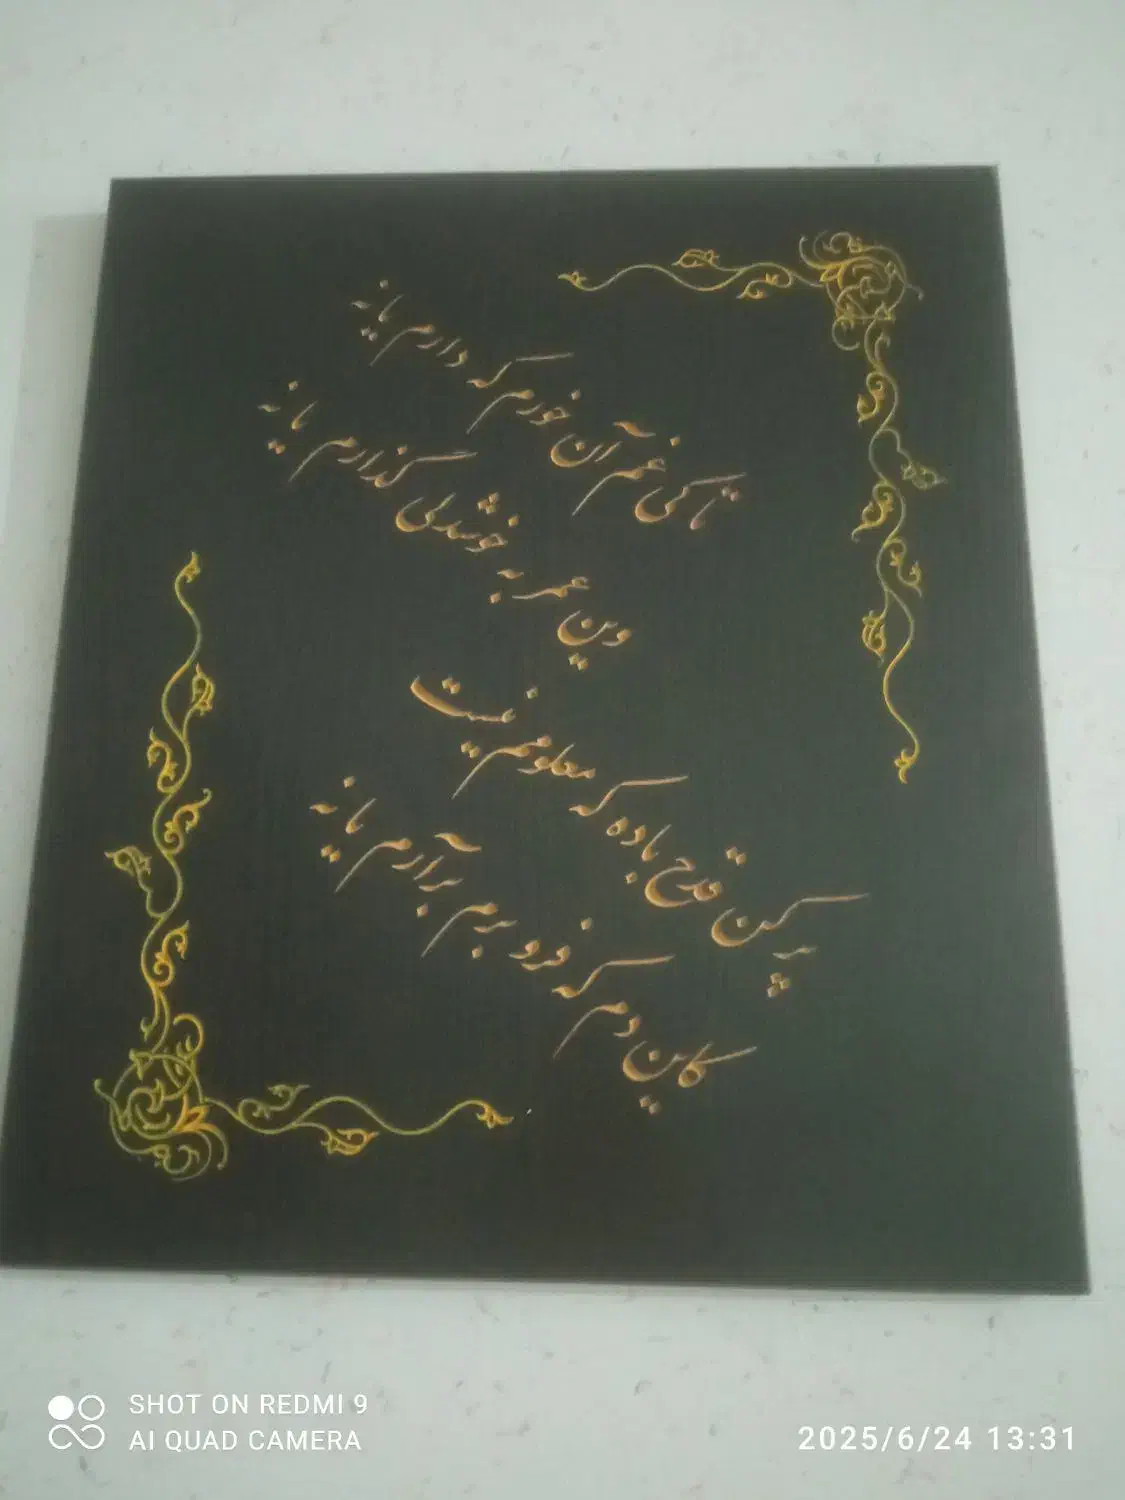 تا کی غم آن خورم که دارم یا نه
وین عمر به خوشدلی گذارم یا نه
پر کن قدح باده که معلومم نیست
کاین دم که فرو برم برآرم یا نه
SHOT ON REDMI 9
AI QUAD CAMERA
2025/6/24 13:31